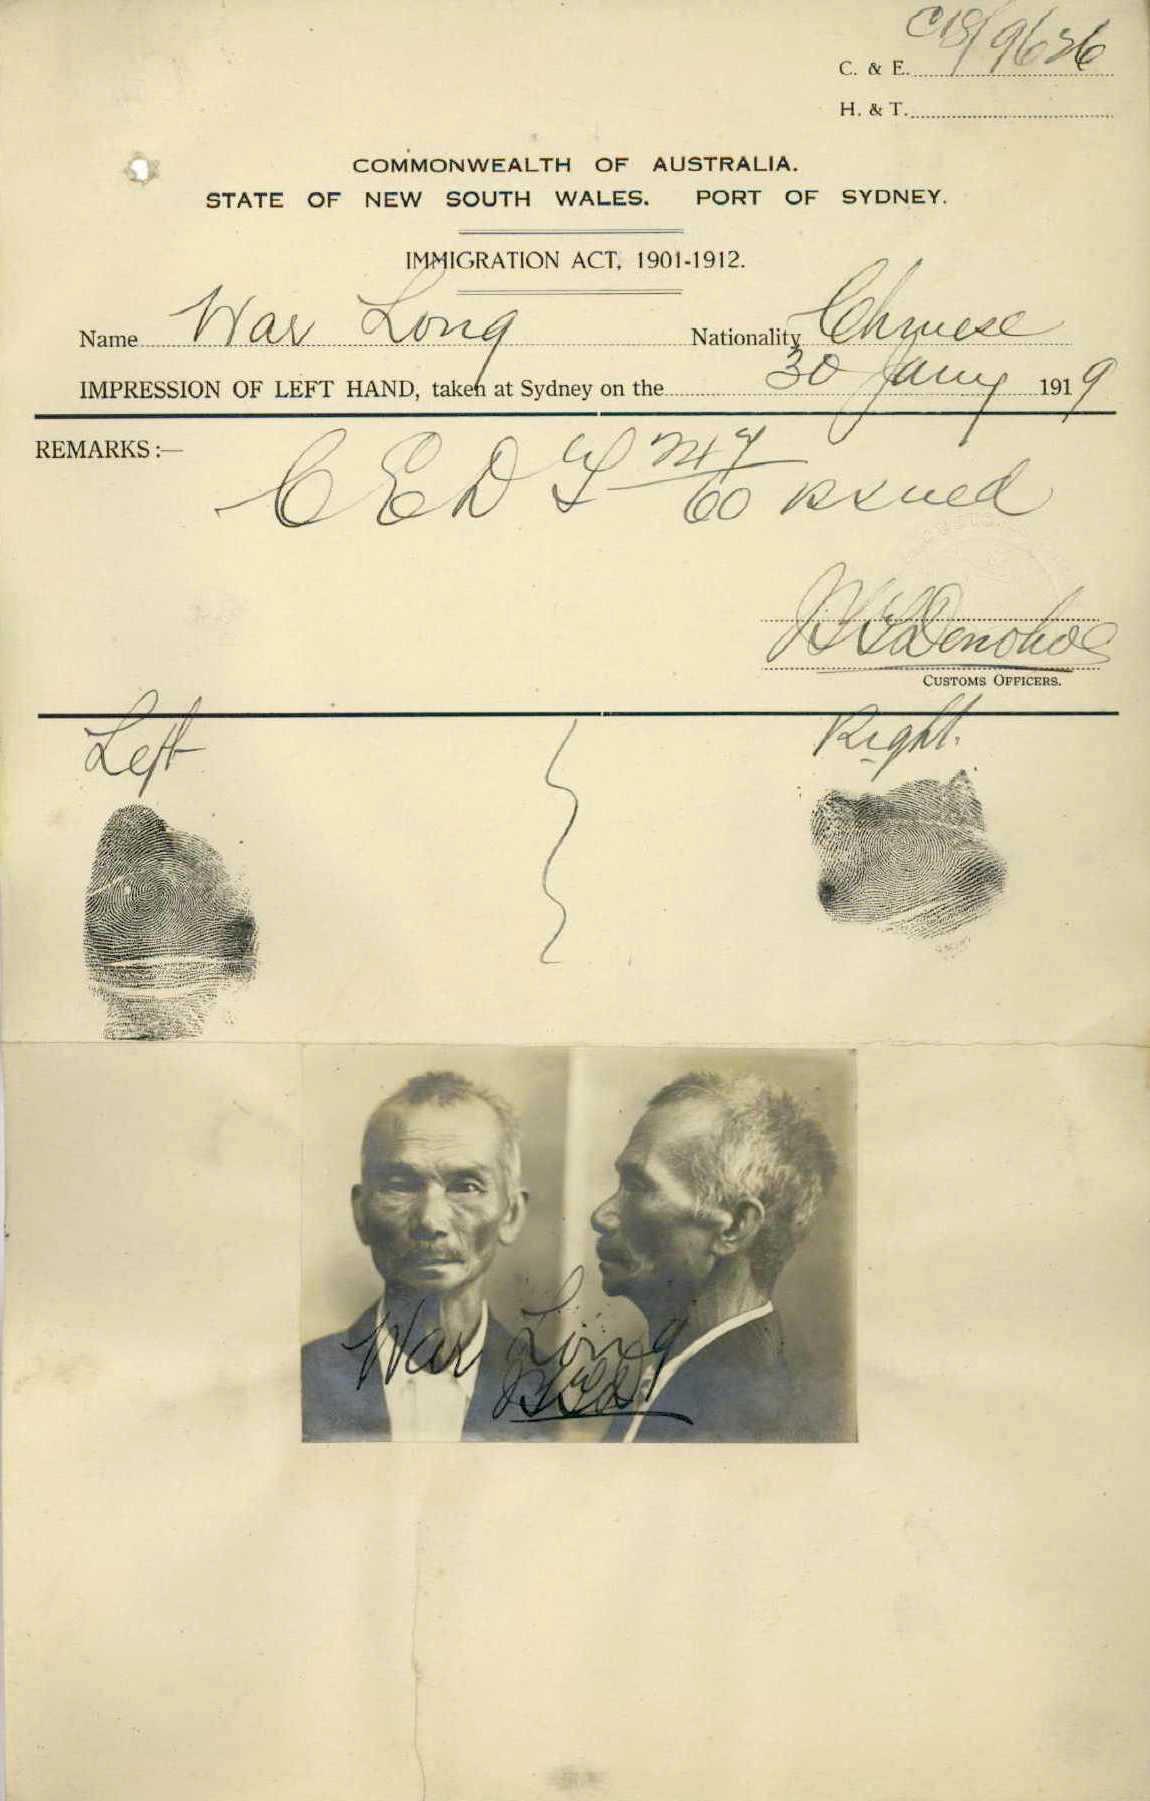 C18/9626
C. & E.
H. & T.
COMMONWEALTH OF AUSTRALIA.
STATE OF NEW SOUTH WALES. PORT OF SYDNEY.
IMMIGRATION ACT, 1901-1912.
Name War Long Nationality Chinese
IMPRESSION OF LEFT HAND, taken at Sydney on the 30 Jany 1919
REMARKS:—
C E D T 247/60 issued
Donohoe
CUSTOMS OFFICERS.
Left Right.
War Long